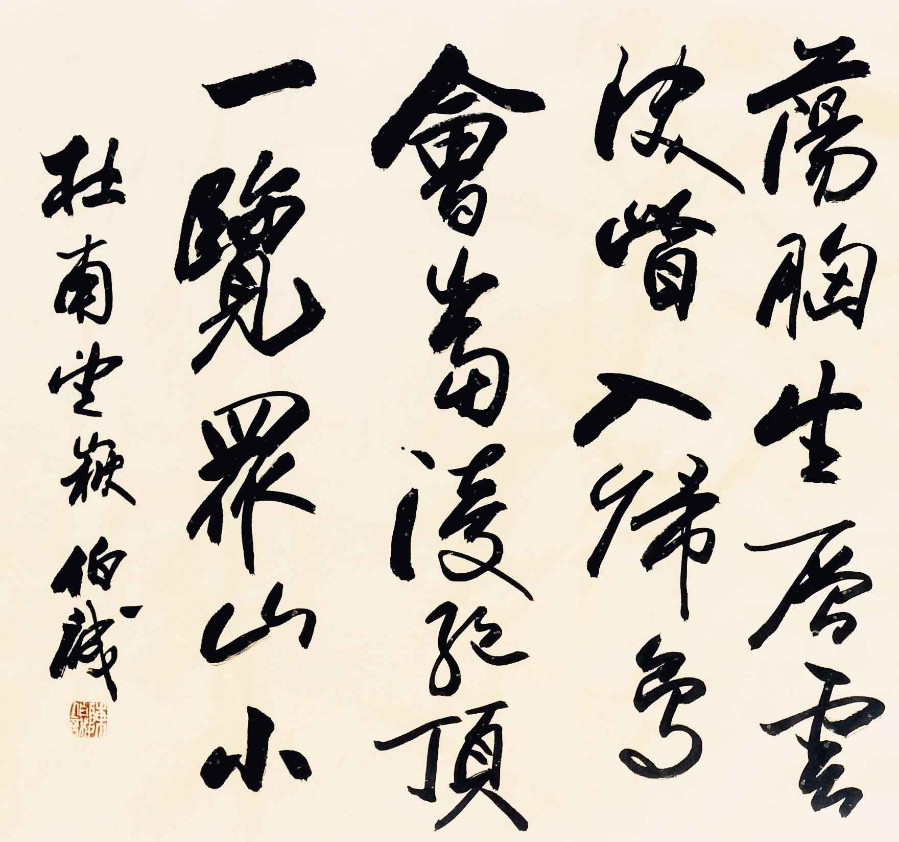 蕩胸生層雲
決眥入歸鳥
會當淩絕頂
一覽眾山小
杜甫望嶽 伯誠